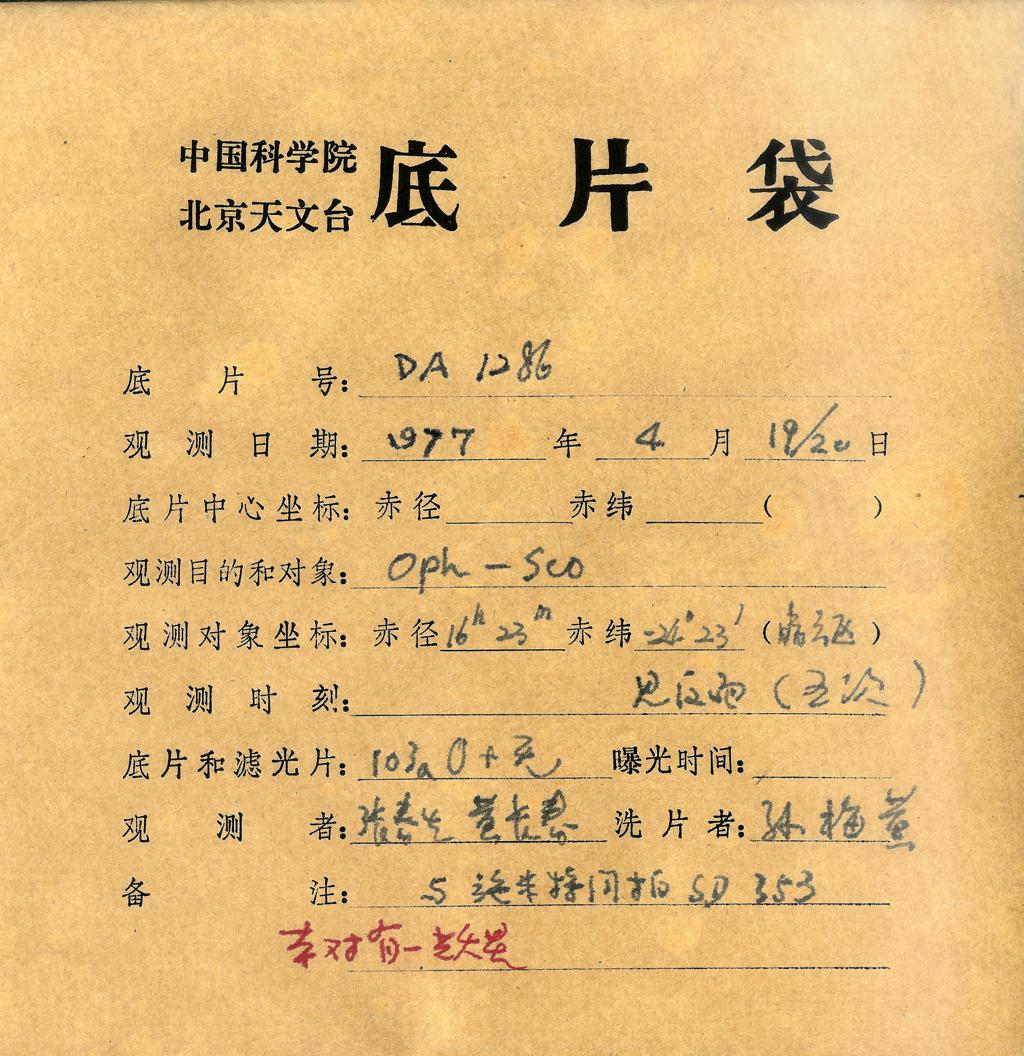 中国科学院
北京天文台 底片袋
底片号: DA 1286
观测日期: 1977 年 4 月 19/20 日
底片中心坐标: 赤径 赤纬 ( )
观测目的和对象: Oph — Sco
观测对象坐标: 赤径 16h 23m 赤纬 -24° 23′ (暗云区)
观测时刻: 见反面 (五次)
底片和滤光片: 103a O + 无 曝光时间:
观测者: 张春生 黄长春 洗片者: 孙梅
备注: 与施米特同拍 SD 353
有一